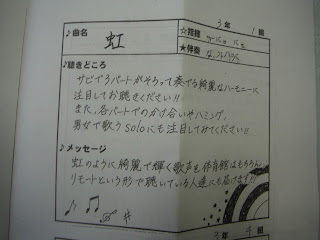 3年 1組
♪曲名 虹
☆指揮
☆伴奏
♪聴きどころ
サビで3パートがそろって奏でる綺麗なハーモニーに
注目してお聴きください!!
また、各パートでのかけ合いやハミング、
男女で歌うsoloにも注目してみてください!!
♪メッセージ
虹のように綺麗で輝く歌声を体育館はもちろん、
リモートという形で聴いている人達にも届けます!!
3年 組